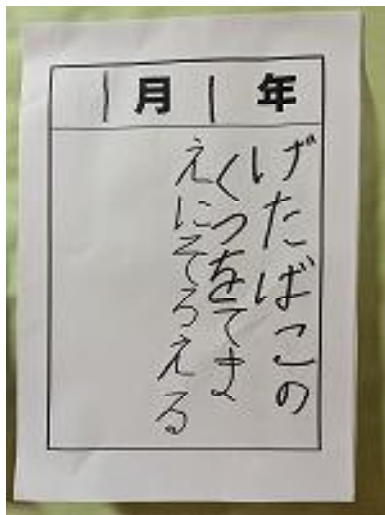 1月1年
げたばこの
くつをてま
えにそろえる